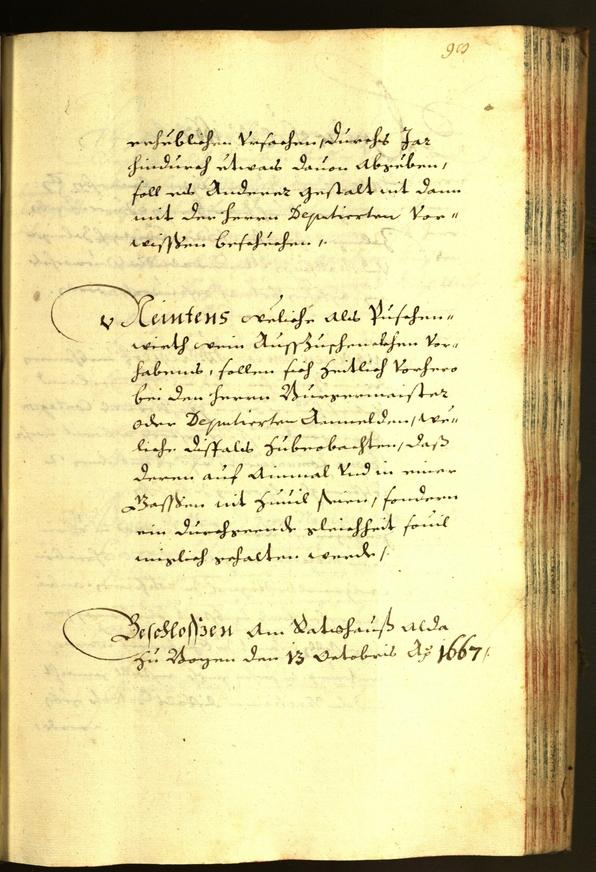 90
erheblichen Vrsachen, durchs Jar
hindurch etwas dauon abgeben,
soll es Anderer gestalt nit dann
mit der herrn Deputierten Vor¬
wissen beschechen /.
Neintens weliche als Puschen¬
wirth wein Ausszuschenckhen Vor¬
habens, sollen sich Zeitlich Vorhero
bei den herrn Burgermaister
oder Deputierten Anmelden, we¬
liche dissfals Zubeobachten, daß
deren auf Ainmal Vnd in einer
Gassen nit Zuuil seien, sondern
ein durchgeende gleichheit souil
miglich gehalten werde /.
Beschlossen Am Rathauß alda
Zu Bozen den 13 Octobris Aº 1667 /.